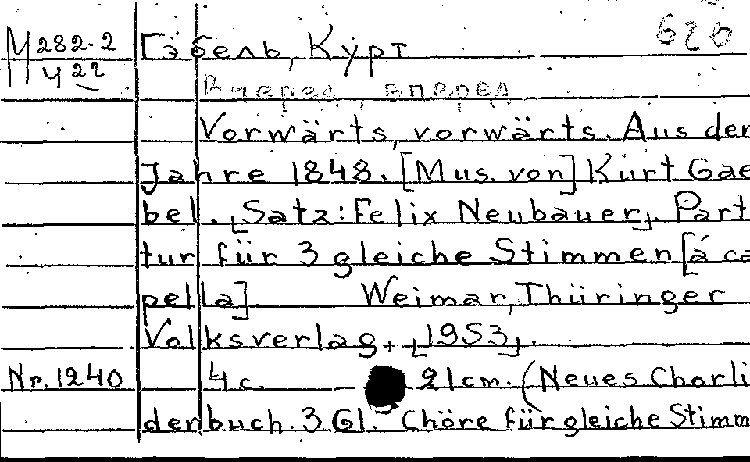 М 282-2 Гэбель, Курт 626
Ч 22
Вперед, вперед
Vorwärts, vorwärts. Aus dem
Jahre 1848. [Mus. von] Kurt Gae
bel. [Satz: Felix Neubauer]. Part
tur für 3 gleiche Stimmen [á ca
pella] Weimar, Thüringer
Volksverlag, [1953].
Nr. 1240 4 c. 21 cm. (Neues Chorli
derbuch. 3 Gl. Chöre für gleiche Stimm